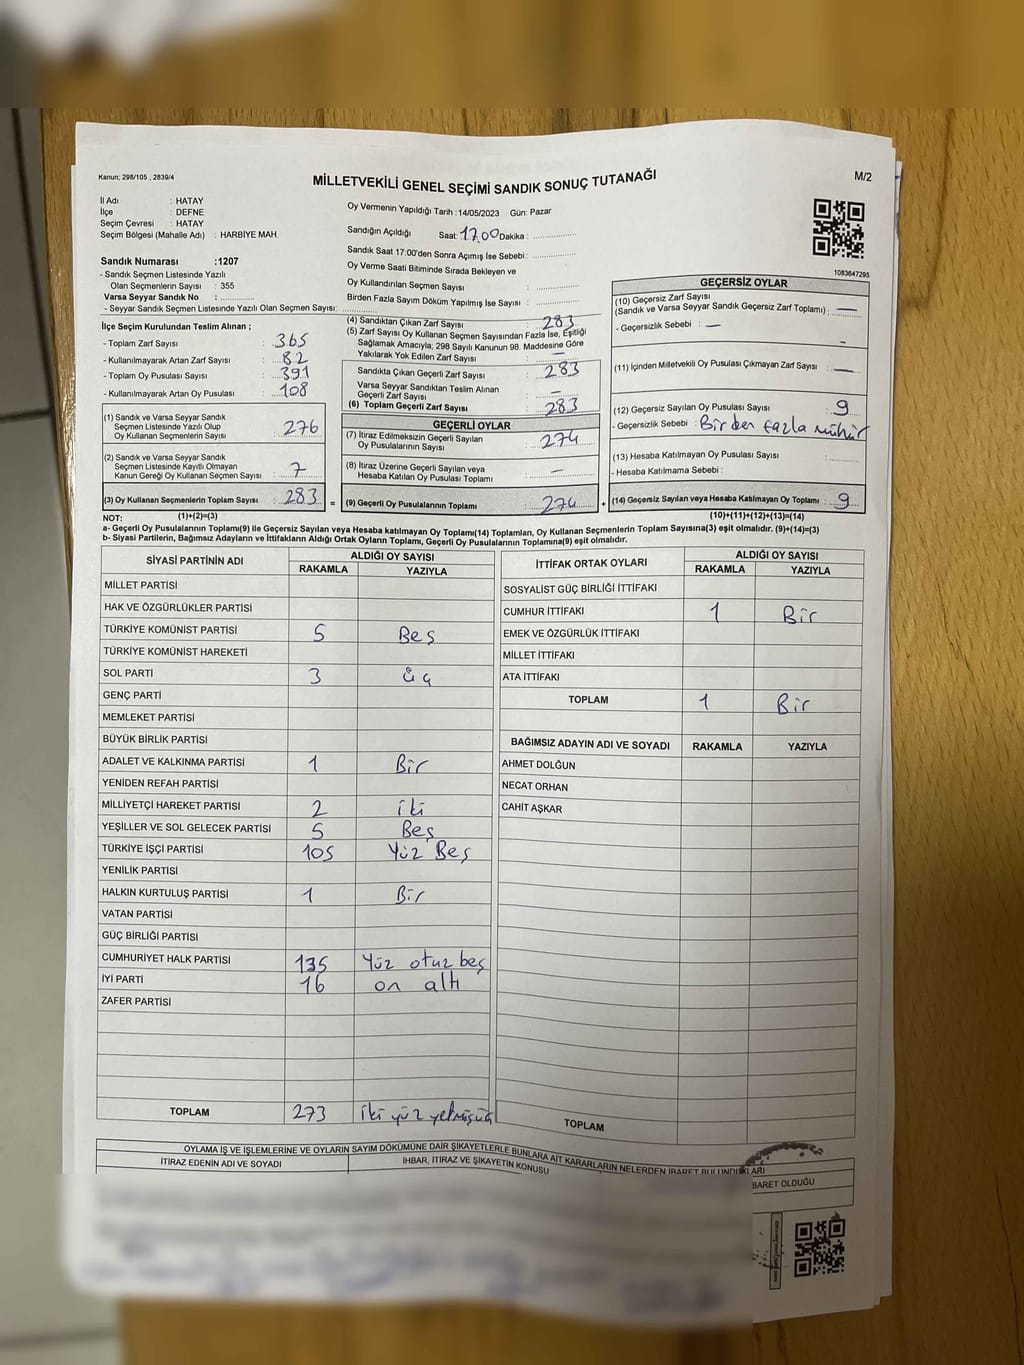 Kanun; 298/105 , 2839/4
MİLLETVEKİLİ GENEL SEÇİMİ SANDIK SONUÇ TUTANAĞI
M/2
İl Adı : HATAY
İlçe : DEFNE
Seçim Çevresi : HATAY
Seçim Bölgesi (Mahalle Adı) : HARBİYE MAH.
Sandık Numarası :1207
- Sandık Seçmen Listesinde Yazılı
Olan Seçmenlerin Sayısı : 355
Varsa Seyyar Sandık No :
- Seyyar Sandık Seçmen Listesinde Yazılı Olan Seçmen Sayısı:
Oy Vermenin Yapıldığı Tarih :14/05/2023 Gün: Pazar
Sandığın Açıldığı Saat: 17.00 Dakika :
Sandık Saat 17:00'den Sonra Açımış İse Sebebi :
Oy Verme Saati Bitiminde Sırada Bekleyen ve
Oy Kullandırılan Seçmen Sayısı :
Birden Fazla Sayım Döküm Yapılmış İse Sayısı :
1083647295
İlçe Seçim Kurulundan Teslim Alınan ;
- Toplam Zarf Sayısı : 365
- Kullanılmayarak Artan Zarf Sayısı : 82
- Toplam Oy Pusulası Sayısı : 391
- Kullanılmayarak Artan Oy Pusulası : 108
(1) Sandık ve Varsa Seyyar Sandık
Seçmen Listesinde Yazılı Olup
Oy Kullanan Seçmenlerin Sayısı : 276
(2) Sandık ve Varsa Seyyar Sandık
Seçmen Listesinde Kayıtlı Olmayan
Kanun Gereği Oy Kullanan Seçmen Sayısı : 7
(3) Oy Kullanan Seçmenlerin Toplam Sayısı : 283 =
(1)+(2)=(3)
(4) Sandıktan Çıkan Zarf Sayısı : 283
(5) Zarf Sayısı Oy Kullanan Seçmen Sayısından Fazla İse, Eşitliği
Sağlamak Amacıyla; 298 Sayılı Kanunun 98. Maddesine Göre
Yakılarak Yok Edilen Zarf Sayısı : —
Sandıkta Çıkan Geçerli Zarf Sayısı : 283
Varsa Seyyar Sandıktan Teslim Alınan
Geçerli Zarf Sayısı : —
(6) Toplam Geçerli Zarf Sayısı : 283
GEÇERLİ OYLAR
(7) İtiraz Edilmeksizin Geçerli Sayılan
Oy Pusulalarının Sayısı : 274
(8) İtiraz Üzerine Geçerli Sayılan veya
Hesaba Katılan Oy Pusulası Toplamı : —
(9) Geçerli Oy Pusulalarının Toplamı : 274 +
GEÇERSİZ OYLAR
(10) Geçersiz Zarf Sayısı
(Sandık ve Varsa Seyyar Sandık Geçersiz Zarf Toplamı) : —
- Geçersizlik Sebebi : —
(11) İçinden Milletvekili Oy Pusulası Çıkmayan Zarf Sayısı : —
(12) Geçersiz Sayılan Oy Pusulası Sayısı : 9
- Geçersizlik Sebebi : Birden fazla mühür
(13) Hesaba Katılmayan Oy Pusulası Sayısı :
- Hesaba Katılmama Sebebi :
(14) Geçersiz Sayılan veya Hesaba Katılmayan Oy Toplamı : 9
(10)+(11)+(12)+(13)=(14)
NOT:
a- Geçerli Oy Pusulalarının Toplamı(9) ile Geçersiz Sayılan veya Hesaba katılmayan Oy Toplamı(14) Toplamları, Oy Kullanan Seçmenlerin Toplam Sayısına(3) eşit olmalıdır. (9)+(14)=(3)
b- Siyasi Partilerin, Bağımsız Adayların ve İttifakların Aldığı Ortak Oyların Toplamı, Geçerli Oy Pusulalarının Toplamına(9) eşit olmalıdır.
SİYASİ PARTİNİN ADI ALDIĞI OY SAYISI
RAKAMLA YAZIYLA
MİLLET PARTİSİ
HAK VE ÖZGÜRLÜKLER PARTİSİ
TÜRKİYE KOMÜNİST PARTİSİ 5 Beş
TÜRKİYE KOMÜNİST HAREKETİ
SOL PARTİ 3 üç
GENÇ PARTİ
MEMLEKET PARTİSİ
BÜYÜK BİRLİK PARTİSİ
ADALET VE KALKINMA PARTİSİ 1 Bir
YENİDEN REFAH PARTİSİ
MİLLİYETÇİ HAREKET PARTİSİ 2 iki
YEŞİLLER VE SOL GELECEK PARTİSİ 5 Beş
TÜRKİYE İŞÇİ PARTİSİ 105 Yüz Beş
YENİLİK PARTİSİ
HALKIN KURTULUŞ PARTİSİ 1 Bir
VATAN PARTİSİ
GÜÇ BİRLİĞİ PARTİSİ
CUMHURİYET HALK PARTİSİ 135 Yüz otuz beş
İYİ PARTİ 16 on altı
ZAFER PARTİSİ
TOPLAM 273 iki yüz yetmişüç
İTTİFAK ORTAK OYLARI ALDIĞI OY SAYISI
RAKAMLA YAZIYLA
SOSYALİST GÜÇ BİRLİĞİ İTTİFAKI
CUMHUR İTTİFAKI 1 Bir
EMEK VE ÖZGÜRLÜK İTTİFAKI
MİLLET İTTİFAKI
ATA İTTİFAKI
TOPLAM 1 Bir
BAĞIMSIZ ADAYIN ADI VE SOYADI RAKAMLA YAZIYLA
AHMET DOLĞUN
NECAT ORHAN
CAHİT AŞKAR
TOPLAM
OYLAMA İŞ VE İŞLEMLERİNE VE OYLARIN SAYIM DÖKÜMÜNE DAİR ŞİKAYETLERLE BUNLARA AİT KARARLARIN NELERDEN İBARET BULUNDUKLARI
İTİRAZ EDENİN ADI VE SOYADI İHBAR, İTİRAZ VE ŞİKAYETİN KONUSU
BARET OLDUĞU